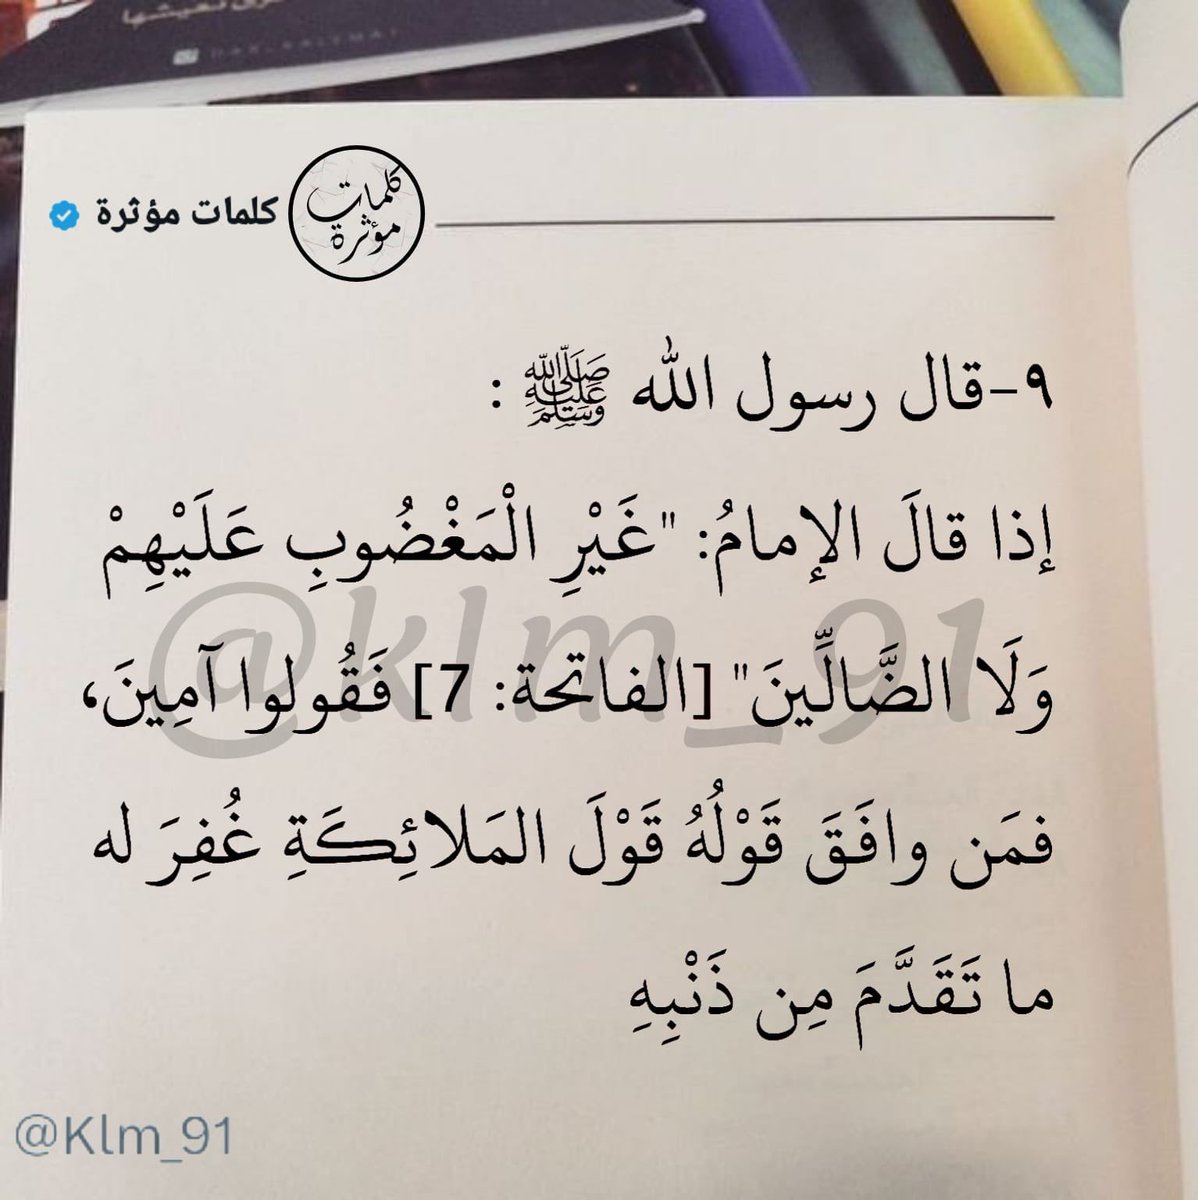 كلمات مؤثرة
كلمات مؤثرة
٩-قال رسول الله ﷺ :
إذا قالَ الإمامُ: "غَيْرِ الْمَغْضُوبِ عَلَيْهِمْ
وَلَا الضَّالِّينَ" [الفاتحة: 7] فَقُولوا آمِينَ،
فمَن وافَقَ قَوْلُهُ قَوْلَ المَلائِكَةِ غُفِرَ له
ما تَقَدَّمَ مِن ذَنْبِهِ
@klm_91
@Klm_91